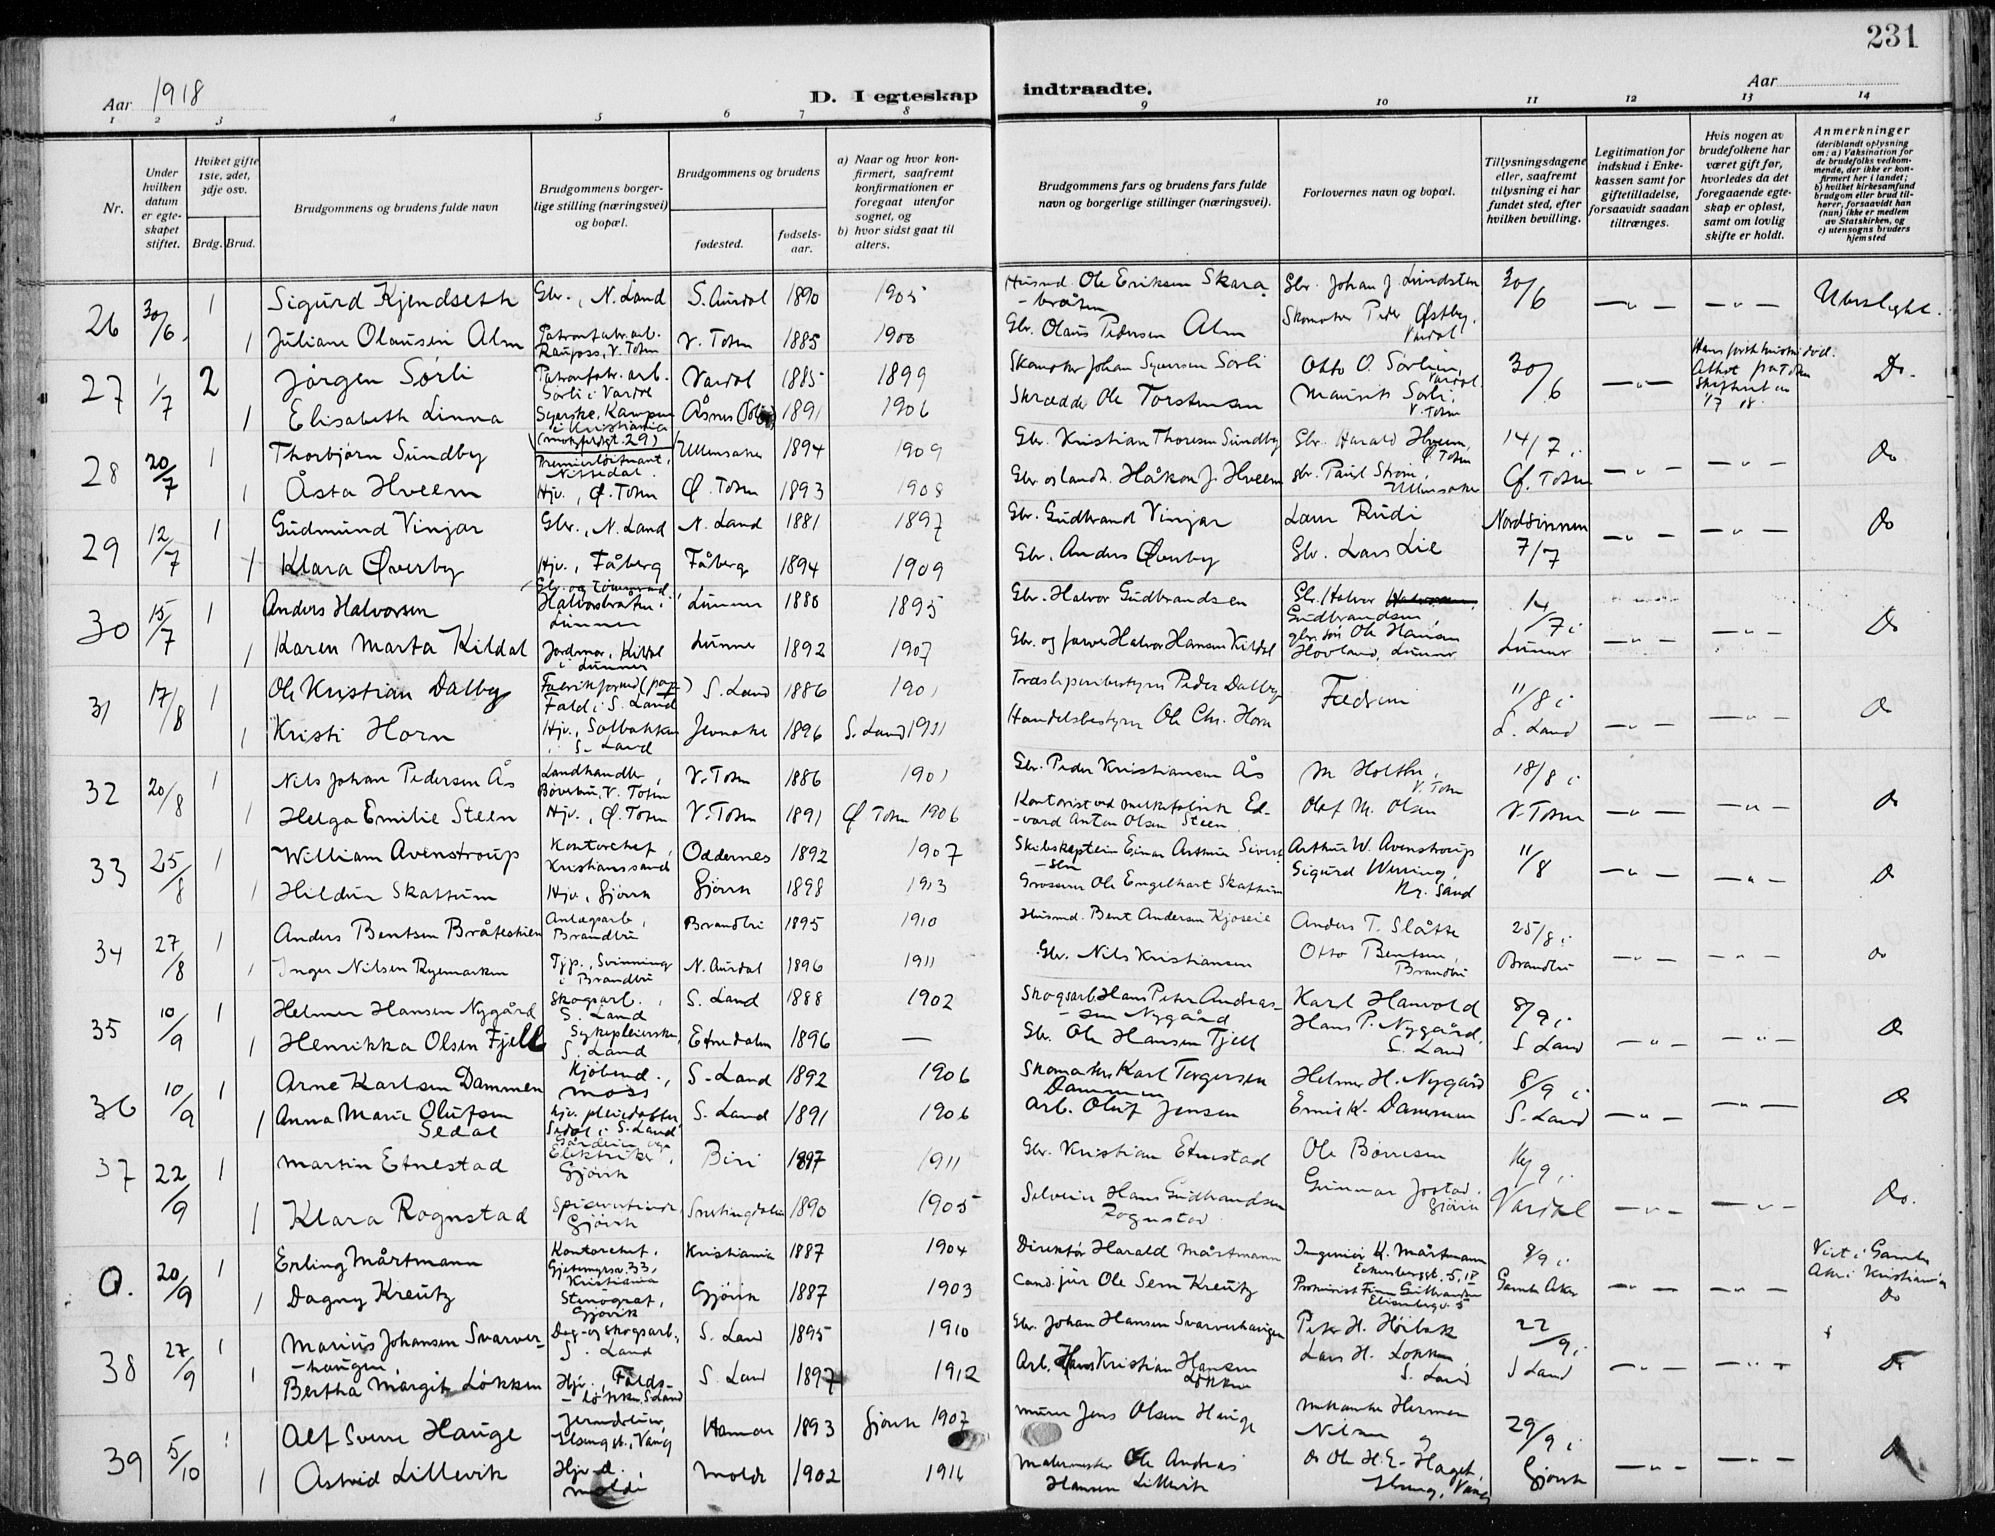 231
Aar 1918
D. I egteskap indtraadte.
Aar
1 2 3 4 5 6 7 8 9 10 11 12 13 14
Nr.
Under hvilken datum er egteskapet stiftet.
Hviket gifte 1ste, 2det, 3dje osv.
Brdg. Brud.
Brudgommens og brudens fulde navn
Brudgommens borgerlige stilling (næringsvei) og bopæl.
Brudgommens og brudens
fødested.
fødselsaar.
a) Naar og hvor konfirmert, saafremt konfirmationen er foregaat utenfor sognet, og
b) hvor sidst gaat til alters.
Brudgommens fars og brudens fars fulde navn og borgerlige stillinger (næringsvei).
Forlovernes navn og bopæl.
Tillysningsdagene eller, saafremt tillysning ei har fundet sted, efter hvilken bevilling.
Legitimation for indskud i Enkekassen samt for giftetilladelse, forsaavidt saadan tiltrænges.
Hvis nogen av brudefolkene har været gift før, hvorledes da det foregaaende egteskap er opløst, samt om lovlig skifte er holdt.
Anmerkninger (deriblandt oplysning om: a) Vaksination for de brudefolks vedkommende, der ikke er konfirmert her i landet; b) hvilket kirkesamfund brudgom eller brud tilhører, forsaavidt han (hun) ikke er medlem av Statskirken, og c) utensogns bruders hjemsted
26 30/6 1 Sigurd Kjendseth Gbr., N. Land S. Aurdal 1890 1905 Husmd Ole Eriksen Skarabråten Gbr. Johan J. Lundsten 30/6 —"— —"— Ubeslegt.
1 Juliane Olausen Alm Patronfabr.arb. Raufoss, V. Toten V. Toten 1885 1900 Gbr. Olaus Pedersen Alm Skomaker Peder Østby, Vardal
27 1/7 2 Jørgen Sørli Patronfabr. arb. Sørli i Vardal Vardal 1885 1899 Skomaker Johan Syversen Sørli Otto O. Sørlien, Vardal 30/6 —"— Do.
1 Elisabeth Linna Syerske, Kampen i Kristiania Åsnes 1891 1906 Skrædder Ole Torstensen Maurits Sørli, V. Toten
28 20/7 1 Thorbjørn Sundby Premierløitnant, Nittedal Ullensaker 1894 1909 Gbr. Kristian Thoresen Sundby Gbr. Harald Hveem, Ø. Toten 14/7 i —"— —"— Do
1 Åsta Hveem Hjv., Ø. Toten Ø. Toten 1893 1908 Gbr og landh. Håkon J. Hveem gbr. Paul Strøm, Ullensaker Ø. Toten
29 12/7 1 Gudmund Vinjar Gbr., N. Land N. Land 1881 1897 Gbr. Gudbrand Vinjar Lars Rudi Nordsinnen —"— —"— Do
1 Klara Øverby Hjv., Fåberg Fåberg 1894 1909 Gbr. Anders Øverby Gbr. Lars Lie 7/7
30 15/7 1 Anders Halvorsen Gbr. og tømmermd. Halvorsbråten i Lunner Lunner 1880 1895 Gbr. Halvor Gudbrandsen Gbr. Halvor Gudbrandsen, 14/7 i —"— —"— Do
1 Karen Marta Kildal Jordmor, Kildal i Lunner Lunner 1892 1907 Gbr. og farver Halvor Hansen Kildal gbr.søn Ole Hansen Hovland, Lunner Lunner
31 17/8 1 Ole Kristian Dalby Fabrikformd (pap) Fald i S. Land S. Land 1886 1901 Træsliperibestyrer Peder Dalby Fædrene 11/8 i —"— —"— Do
1 Kristi Horn Hjv., Solbakken i S. Land Jevnaker 1896 S. Land 1911 Handelsbestyrer Ole Chr. Horn S. Land
32 20/8 1 Nils Johan Pedersen Ås Landhandler, Bøverbru, V. Toten V. Toten 1886 1901 Gbr. Peder Kristiansen Ås M. Holthe, V. Toten 18/8 i —"— —"— Do
1 Helga Emilie Steen Hjv., Ø. Toten V. Toten 1891 Ø Toten 1906 Kontorist ved melkefabrik Edvard Anton Olsen Steen Olaf M. Olsen V. Toten
33 25/8 1 William Avenstroup Kontorchef, Kristianssand Oddernes 1892 1907 Skibskaptein Einar Arthur Sivertsen Arthur W. Avenstroup 11/8 —"— —"— Do
1 Hildur Skattum Hjv., Gjøvik Gjøvik 1898 1913 Grosserer Ole Engelhart Skattum Sigurd Wiring, Kr. Sand
34 27/8 1 Anders Bentsen Bråtestien Anlægsarb., Brandbu Brandbu 1895 1910 Husmd. Bent Andersen Kjoseie Anders T. Slåtte 25/8 i —"— —"— Do
1 Inger Nilsen Ryemarken Tjp., Svinning i Brandbu N. Aurdal 1896 1911 Gbr. Nils Kristiansen Otto Bentsen, Brandbu Brandbu
35 10/9 1 Helmer Hansen Nygård Skogsarb., S. Land S. Land 1888 1902 Skogsarb. Hans Peter Andreassen Nygård Karl Hanvold 8/9 i —"— —"— Do
1 Henrikka Olsen Fjell Sykepleierske, S. Land Etnedalen 1896 — Gbr. Ole Hansen Fjell Hans P. Nygård, S. Land S Land
36 10/9 1 Arne Karlsen Dammen Kjøbmd., Moss S. Land 1892 1906 Skomaker Karl Torgersen Dammen Helmer H. Nygård 8/9 i —"— —"— Do
1 Anna Marie Olufsen Sedal hjv. pleiedatter Sedal i S. Land S. Land 1891 1906 Arb. Oluf Jensen Emil K. Dammen S. Land
37 22/9 1 Martin Etnestad Elektriker, Gjøvik Biri 1897 1911 Gbr. Kristian Etnestad Ole Børresen —"— —"— Do.
1 Klara Rognstad Gjøvik Snertingdalen 1890 1905 Hans Gudbrandsen Rognstad Gunnar Jostad, Gjøvik Vardal
0. 20/9 1 Erling Mårtmann Kontorchef, Gjetemyrsv. 33, Kristiania Kristiania 1887 1904 Direktør Harald Mårtmann Ingeniør K. Mårtmann Eckersbergsgt. 5, IV 8/9 i —"— —"— Viet i Gamle Aker i Kristiania
1 Dagny Kreutz Stenograf, Gjøvik Gjøvik 1887 1903 Cand. jur Ole Sem Kreutz Prokurist Finn Gulbrandsen Elisenbergv. 5 Gamle Aker Do
38 27/9 1 Marius Johansen Svarverhaugen, Dag- og skogsarb., S. Land S. Land 1895 1910 Gbr. Johan Hansen Svarverhaugen Peter H. Høibak 22/9 i —"— —"— Do
1 Bertha Margit Løkken Hjv., Falds-løkken, S. Land S. Land 1897 1912 Arb. Hans Kristian Hansen Løkken Lars H. Løkken, S. Land S Land
39 5/10 1 Alf Sverre Hauge Vang Hamar 1893 Gjøvik 1907 Murer Jens Olsen Hauge Mekaniker Herman Nilsen og 29/9 i —"— —"— Do
1 Astrid Lillevik Hjv. Molde Molde 1902 1916 Malermester Ole Andreas Hansen Lillevik do Ole H.E. Haget, Vang Gjøvik